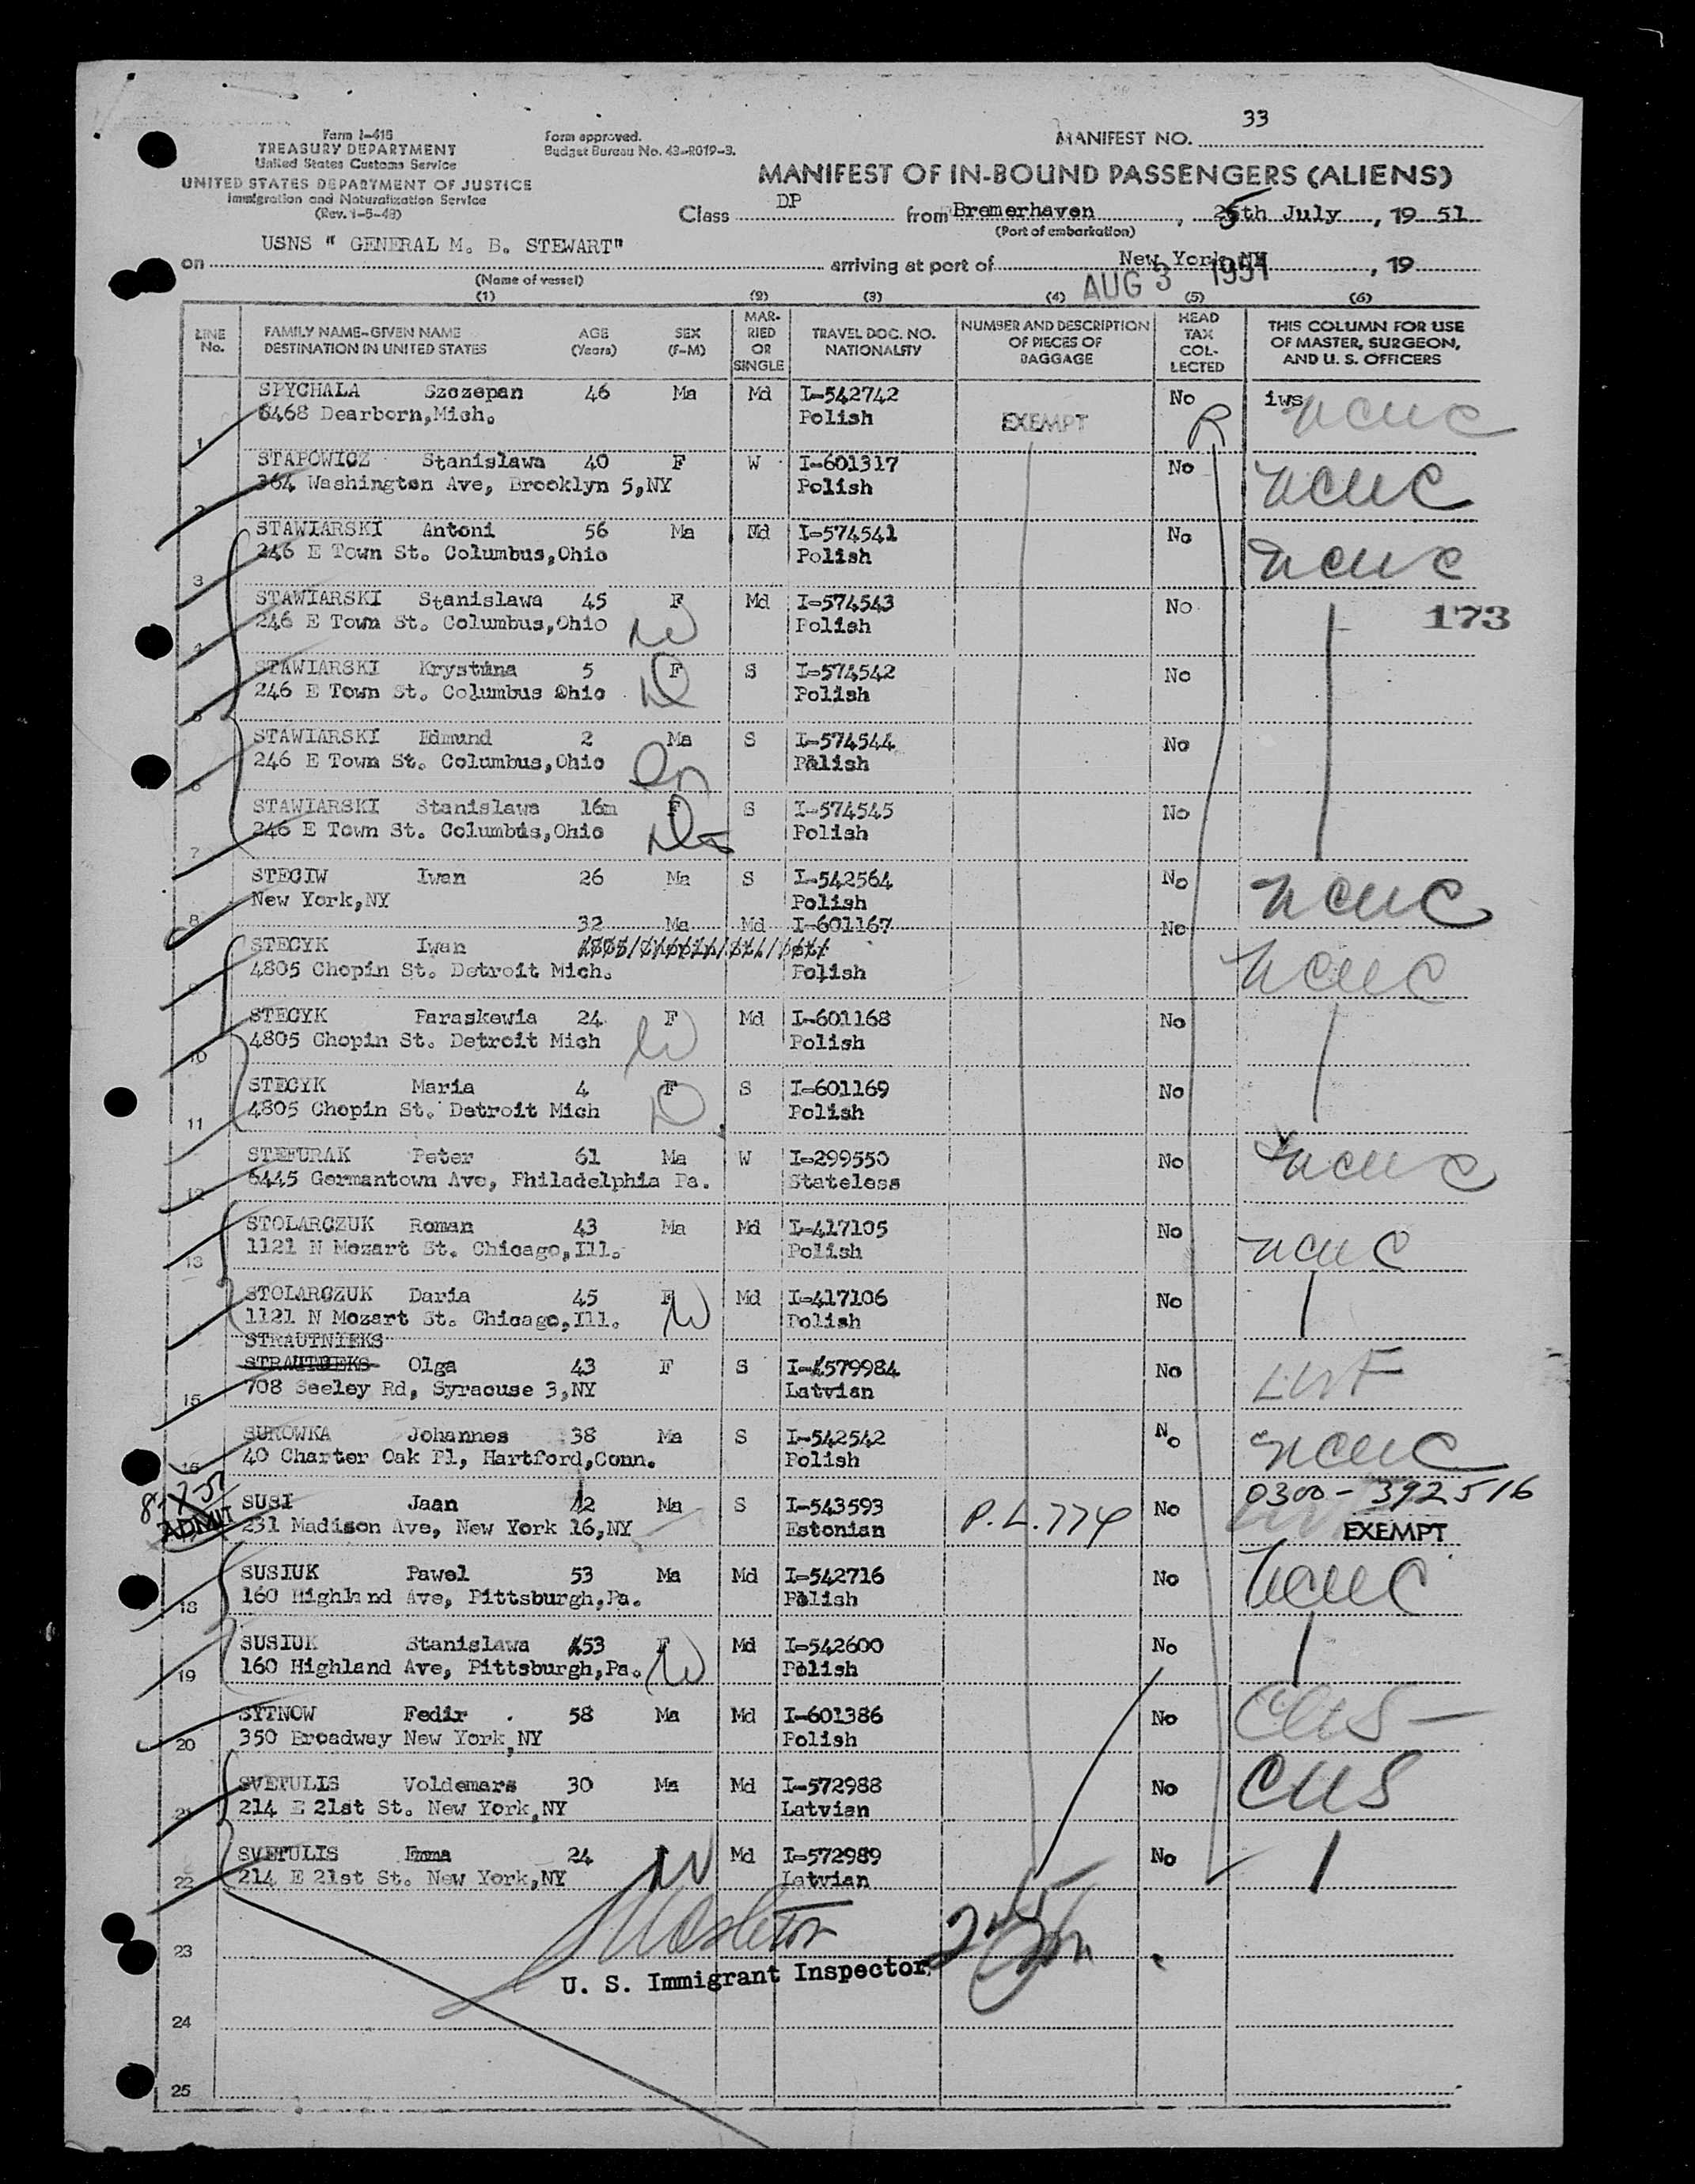 33
MANIFEST NO.
Form I-418
TREASURY DEPARTMENT
United States Customs Service
UNITED STATES DEPARTMENT OF JUSTICE
Immigration and Naturalization Service
(Rev. 1-5-48)
Form approved.
Budget Bureau No. 43-R019-3.
MANIFEST OF IN-BOUND PASSENGERS (ALIENS)
Class DP from Bremerhaven, 25th July, 19 51
(Port of embarkation)
USNS " GENERAL M. B. STEWART"
on arriving at port of New York NY, 19
(Name of vessel)
AUG 3 1951
(1) (2) (3) (4) (5) (6)
LINE No. FAMILY NAME-GIVEN NAME DESTINATION IN UNITED STATES AGE (Years) SEX (F-M) MARRIED OR SINGLE TRAVEL DOC. NO. NATIONALITY NUMBER AND DESCRIPTION OF PIECES OF BAGGAGE HEAD TAX COLLECTED THIS COLUMN FOR USE OF MASTER, SURGEON, AND U. S. OFFICERS
SPYCHALA Szczepan 46 Ma Md I-542742 No iws ncwc
6468 Dearborn, Mich. Polish EXEMPT R
1
STAPOWICZ Stanislawa 40 F W I-601317 No ncwc
364 Washington Ave, Brooklyn 5, NY Polish
2
STAWIARSKI Antoni 56 Ma Md I-574541 No ncwc
246 E Town St. Columbus, Ohio Polish
3
STAWIARSKI Stanislawa 45 F Md I-574543 No 173
246 E Town St. Columbus, Ohio W Polish
4
STAWIARSKI Krystina 5 F S I-574542 No
246 E Town St. Columbus Ohio D Polish
5
STAWIARSKI Edmund 2 Ma S I-574544 No
246 E Town St. Columbus, Ohio Polish
6
STAWIARSKI Stanislawa 16m F S I-574545 No
246 E Town St. Columbus, Ohio Polish
7
STECIW Iwan 26 Ma S I-542564 No ncwc
New York, NY Polish
8
32 Ma Md I-601167 No
STECYK Iwan
4805 Chopin St. Detroit Mich. Polish ncwc
9
STECYK Paraskewia 24 F Md I-601168 No
4805 Chopin St. Detroit Mich W Polish
10
STECYK Maria 4 F S I-601169 No
4805 Chopin St. Detroit Mich D Polish
11
STEFURAK Peter 61 Ma W I-299550 No ncwc
6445 Germantown Ave, Philadelphia Pa. Stateless
12
STOLARCZUK Roman 43 Ma Md I-417105 No ncwc
1121 N Mozart St. Chicago, Ill. Polish
13
STOLARCZUK Daria 45 F Md I-417106 No
1121 N Mozart St. Chicago, Ill. W Polish
STRAUTNIEKS
STRAUTNIEKS Olga 43 F S I-579984 No LWF
708 Seeley Rd, Syracuse 3, NY Latvian
15
SUROWKA Johannes 38 Ma S I-542542 No ncwc
40 Charter Oak Pl, Hartford, Conn. Polish
16
SUSI Jaan 42 Ma S I-543593 P.L. 774 No 0300-392516
ADMIT 231 Madison Ave, New York 16, NY Estonian EXEMPT
SUSIUK Pawel 53 Ma Md I-542716 No ncwc
160 Highland Ave, Pittsburgh, Pa. Polish
18
SUSIUK Stanislawa 53 F Md I-542600 No
160 Highland Ave, Pittsburgh, Pa. W Polish
19
SYTNOW Fedir 58 Ma Md I-601386 No CWS
350 Broadway New York, NY Polish
20
SVETULIS Voldemars 30 Ma Md I-572988 No CWS
214 E 21st St. New York, NY Latvian
21
SVETULIS Emma 24 W Md I-572989 No
214 E 21st St. New York, NY Latvian
22
23
U. S. Immigrant Inspector
24
25